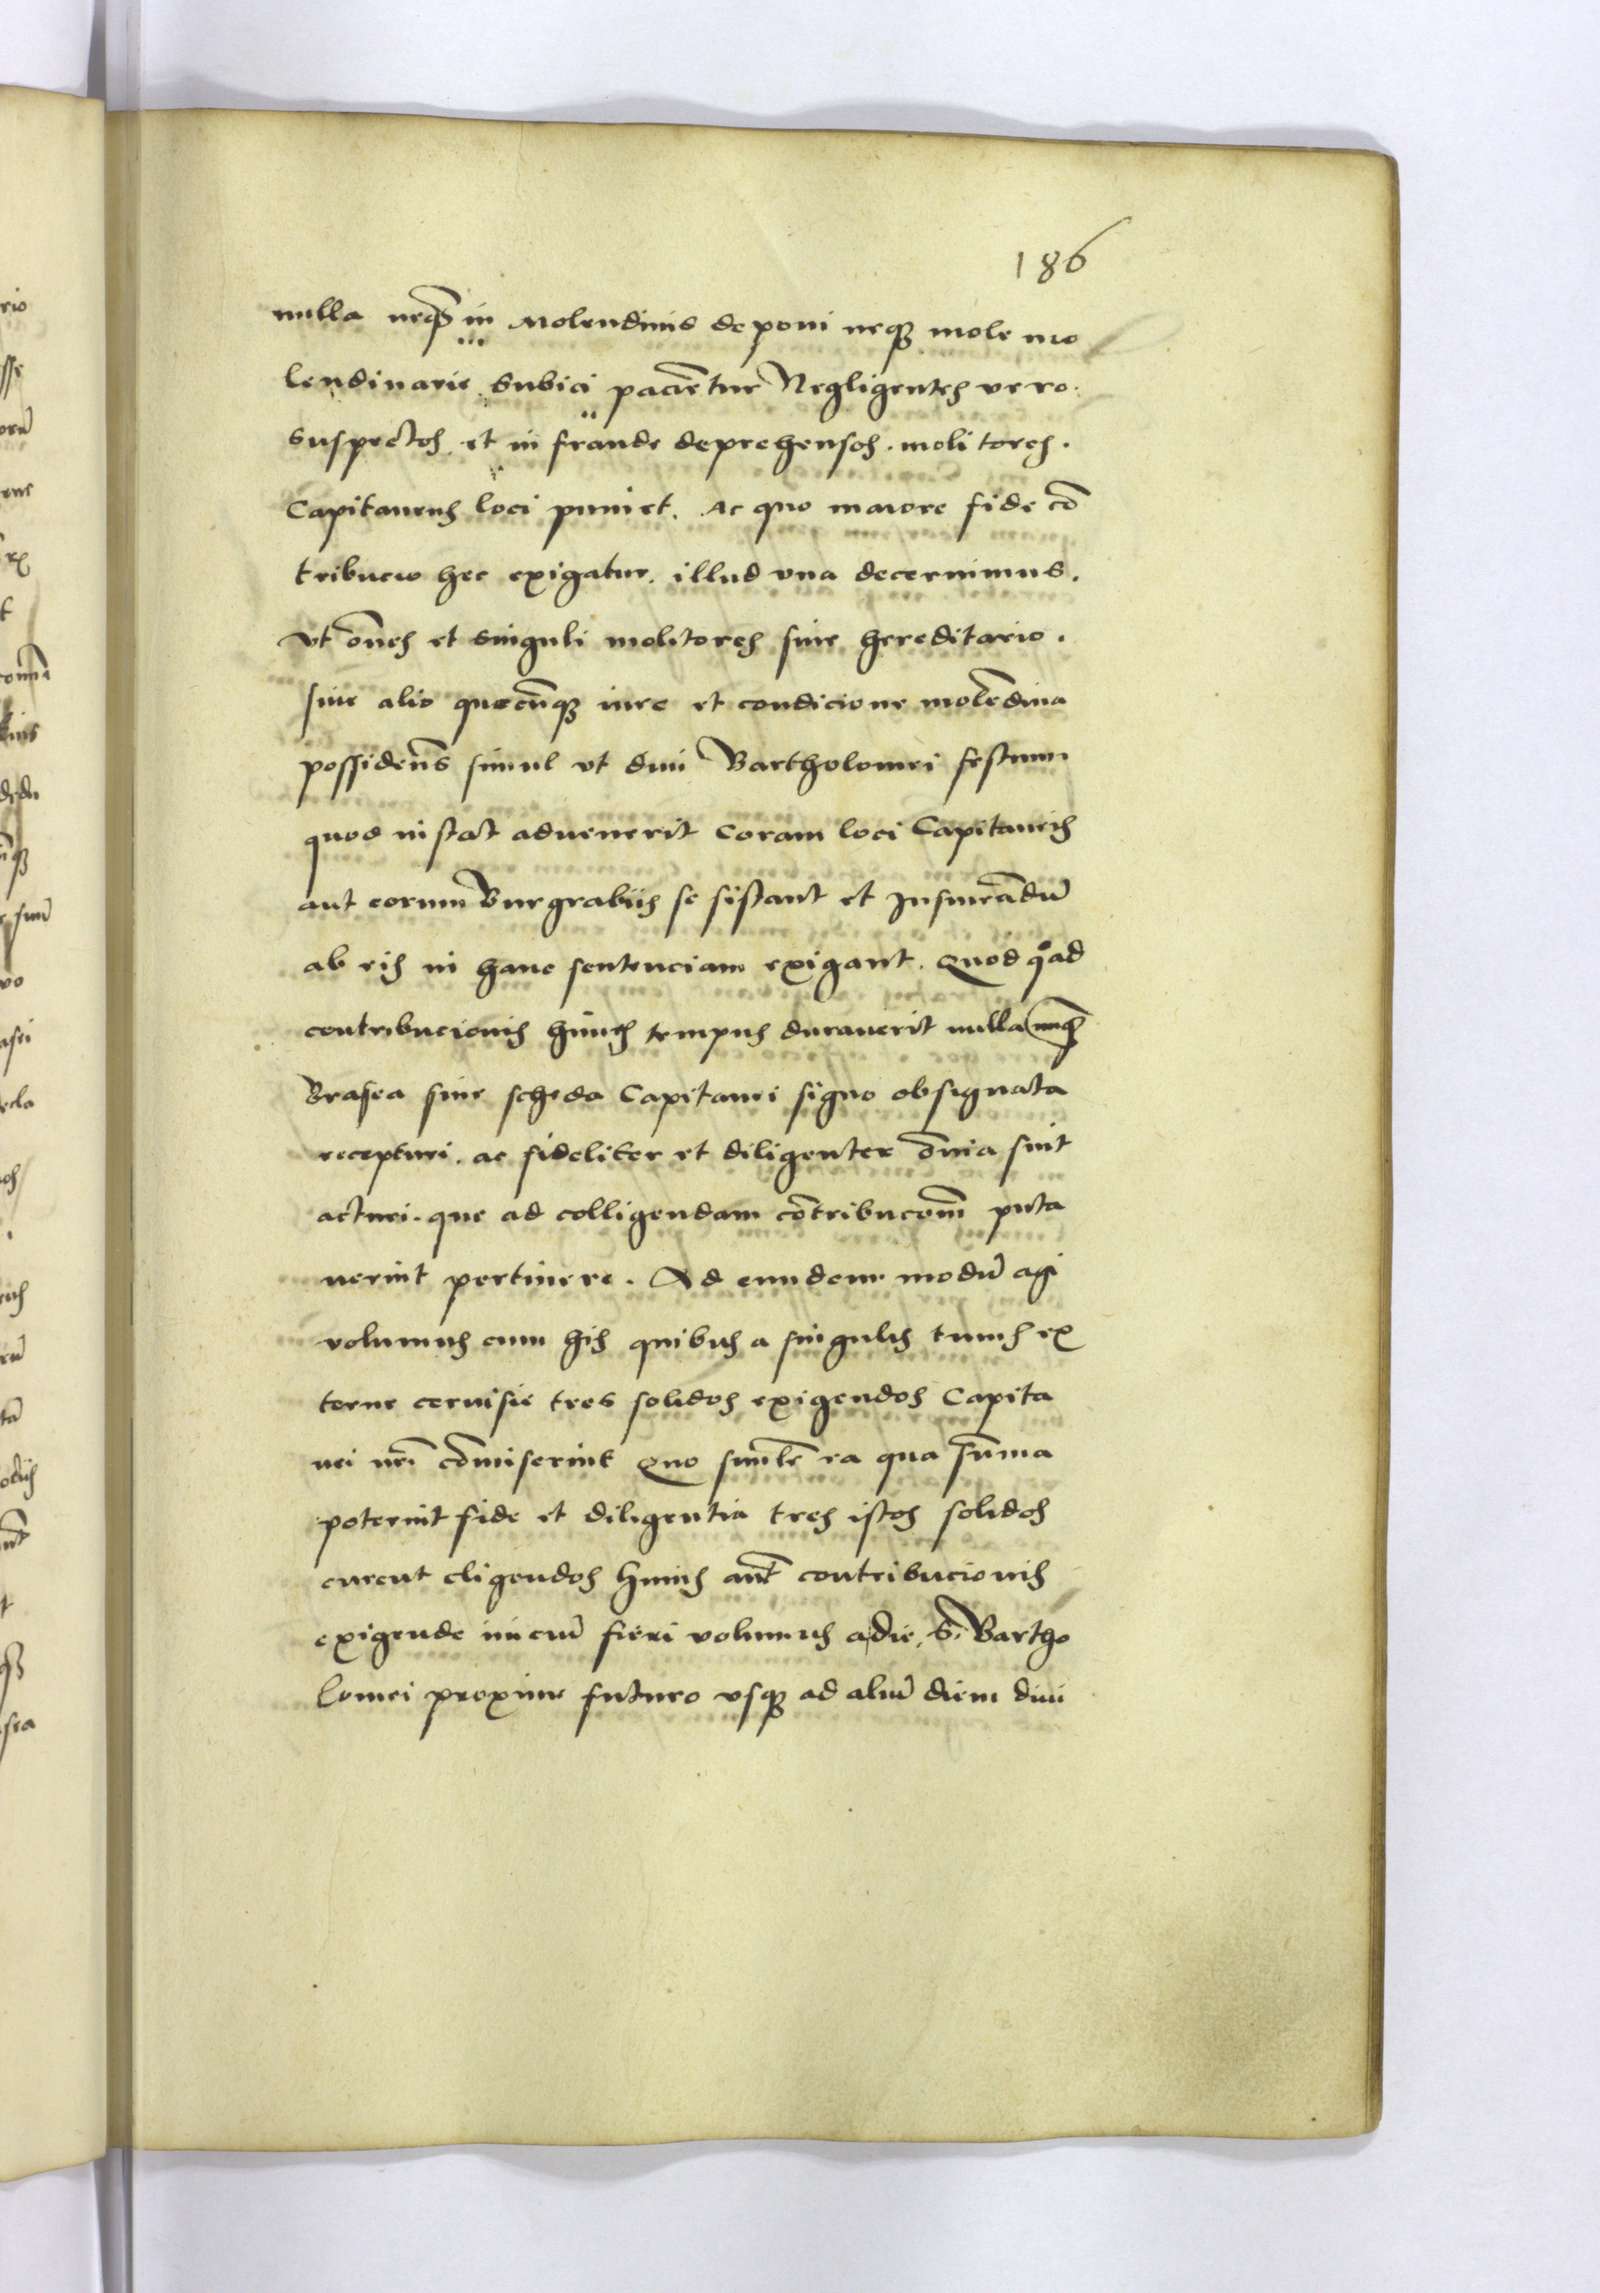 186
nulla neqꝫ in Molendinis deponi neqꝫ mole mo
lendinarie subici pacientur Negligentes vero.
suspectos et in fraude deprehensos. molitores.
Capitaneus loci puniet. Ac quo maiore fide cō
tribucio hec exigatur. illud vna decernimus.
vt oēs et singuli molitores siue hereditario.
siue alio quocūqꝫ iure et condicione molēdina
possidens simul vt diui Bartholomei festum
quod instat aduenerit coram loci Capitaneis
aut eorum Burgrabiis se sistant et Iusiurādū
ab eis in hanc sentenciam exigant. Quod qoad
contribucionis huius tempus durauerit nulla
Brasea sine scheda Capitanei signo obsignata
recepturi. ac fideliter et diligenter oīa sint
acturi. que ad colligendam cōtribucōm puta
uerint pertinere. Ad eundem modū agi
volumus cum his quibus a singulis tunis ex
terne ceruisie tres solidos exigendos Capita
nei nrī cōmiserint Quo similr ea qua summa
poterint fide et diligentia tres istos solidos
curent eligendos huius aut contribucionis
exigende iniciū fieri volumus a die S. Bartho
lomei proxime futuro vsqꝫ ad aliū diem diui